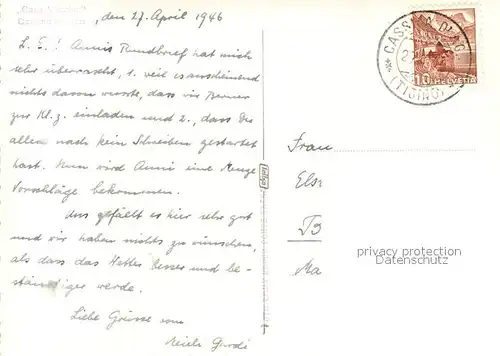 "Casa
Ca
, den 27. April 1946
L. E.! Annis Rundbrief hat mich
sehr überrascht, 1. weil es anscheinend
nichts davon wusste, dass wir Berner
zur Kl. z. einladen und 2., dass Du
allem nach kein Schreiben gestartet
hast. Nun wird Anni eine Menge
Vorschläge bekommen.
Uns gefällt es hier sehr gut
und wir haben nichts zu wünschen,
als dass das Wetter besser und be-
ständiger werde.
Liebe Grüsse von
Gerdi
CASS
(TICINO)
10 HELVETIA
Frau
Els
Ma
privacy protection
Datenschutz